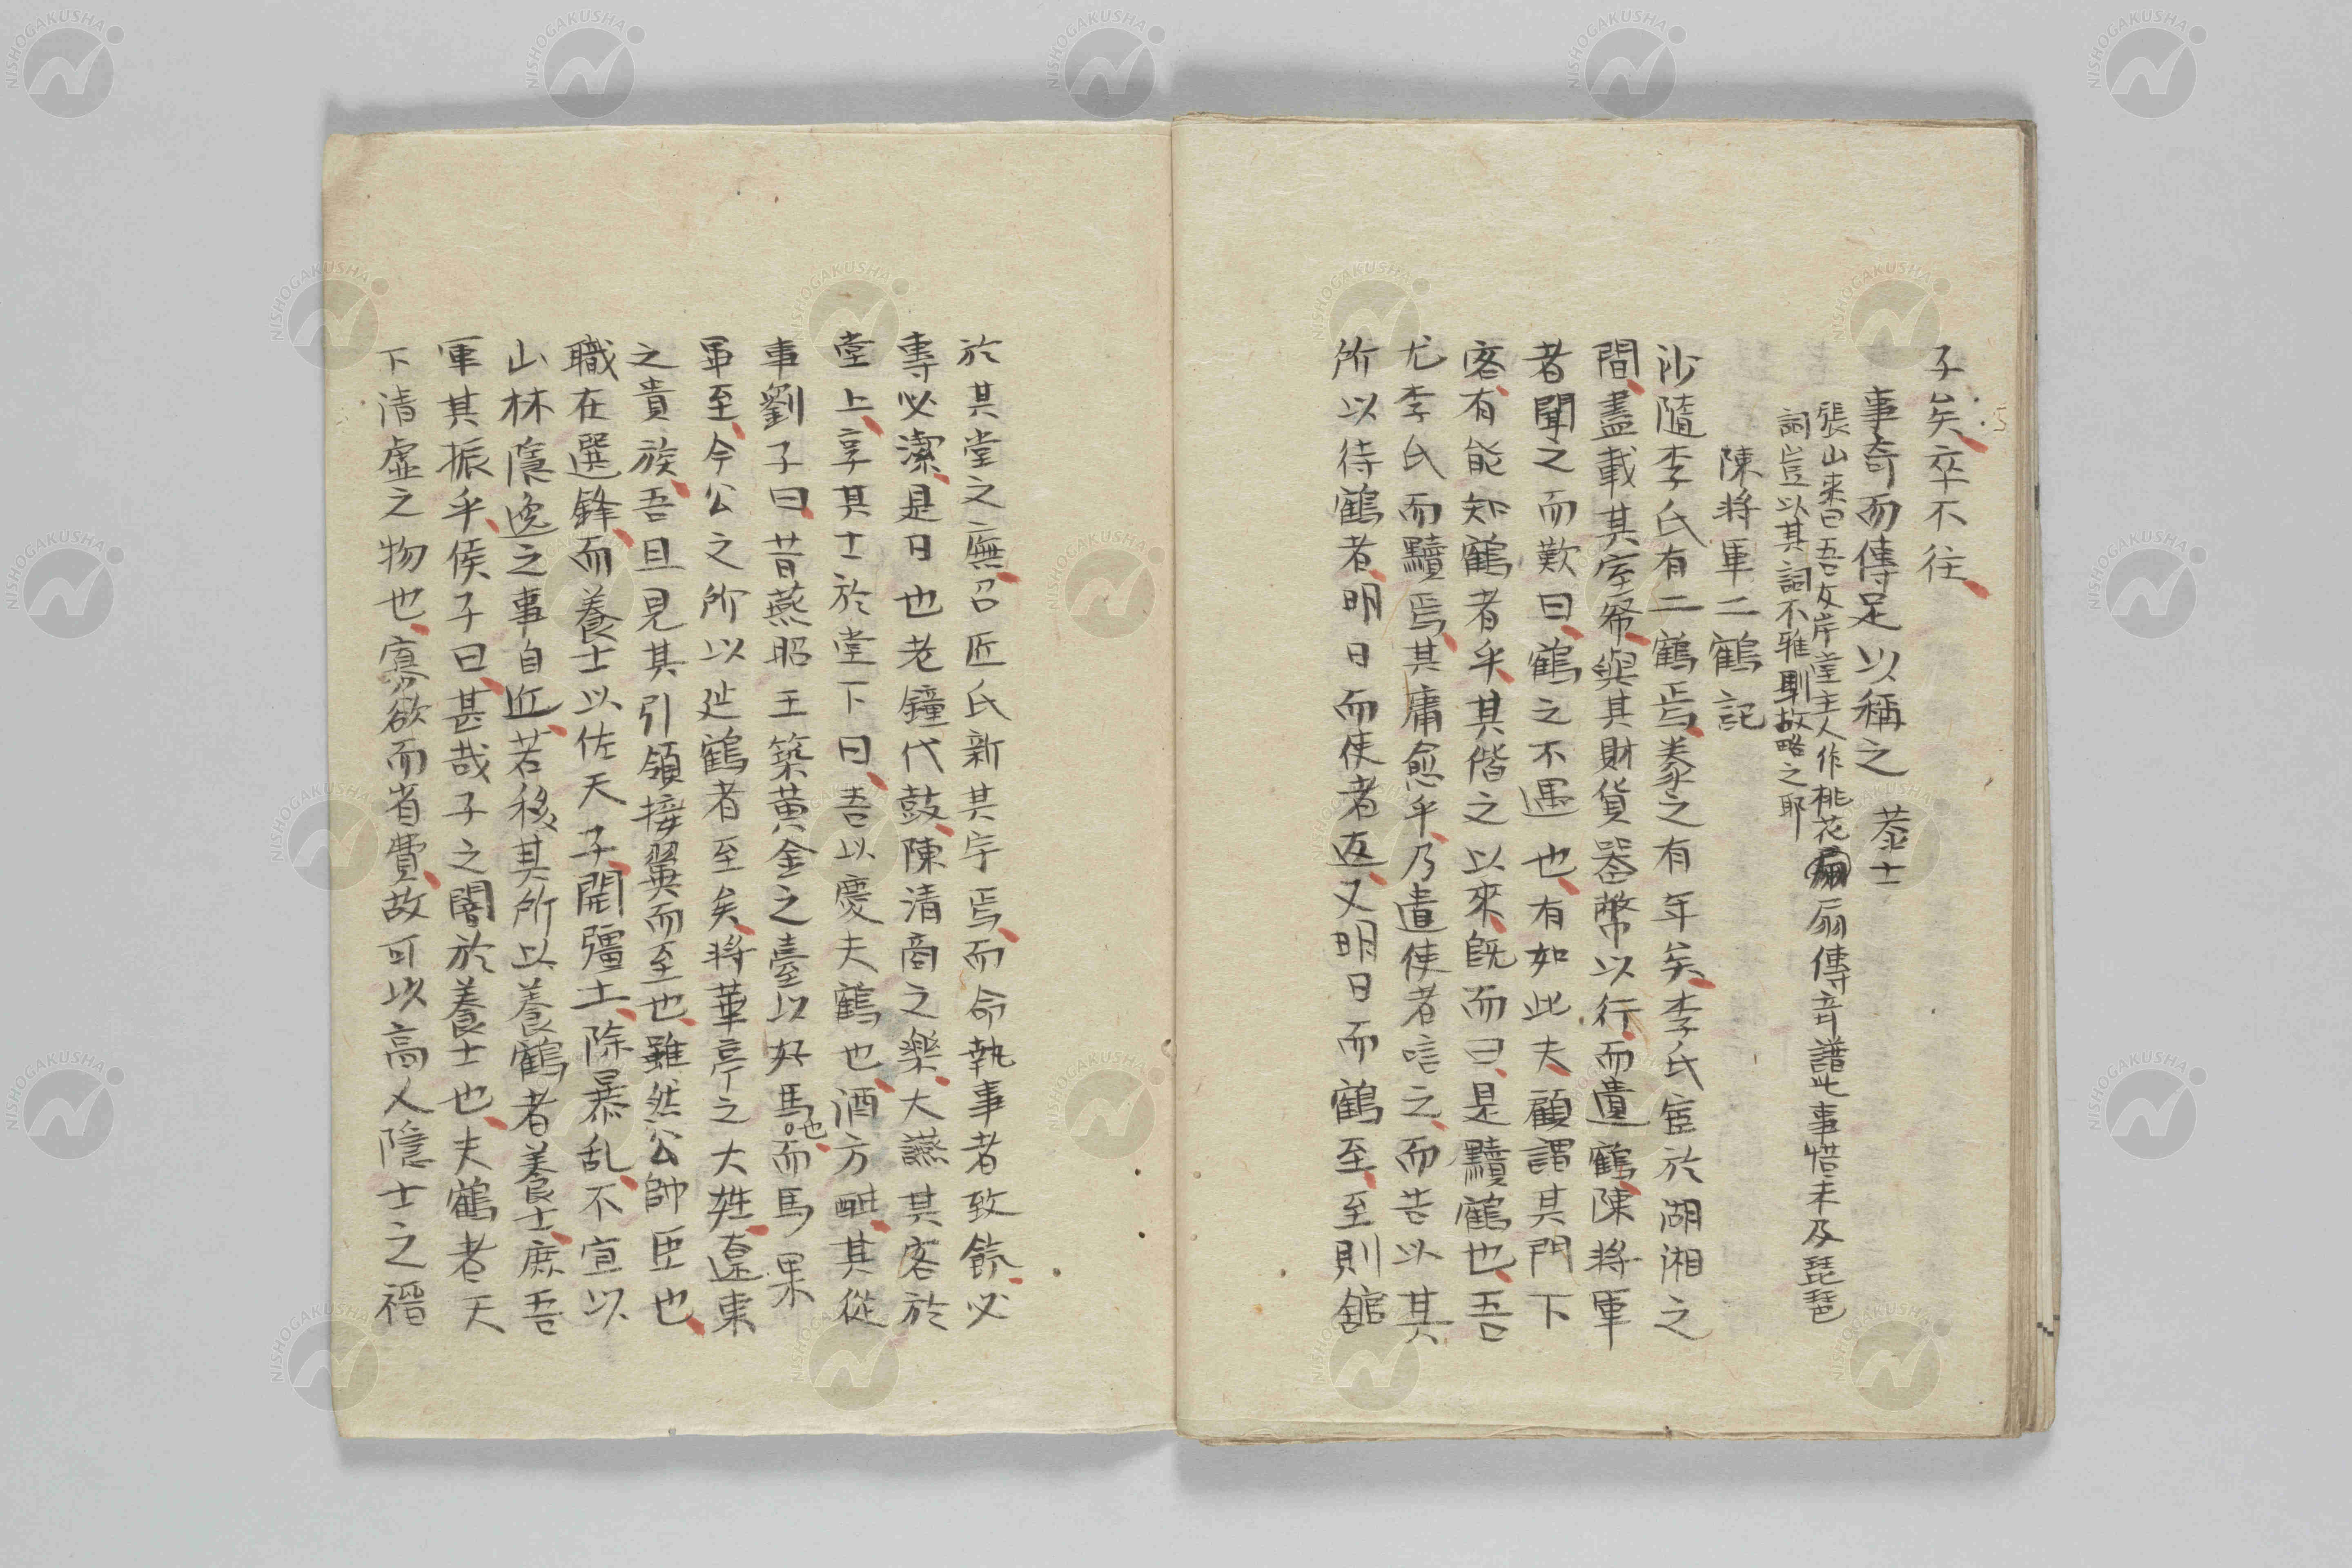 子矣卒不往
事奇而傳足以稱之 恭士
張山來曰吾友岸堂主人作桃花扇傳竒譜此事惜未及琵琶
詞豈以其詞不雅馴故略之耶
陳將軍二鶴記
沙隨李氏有二鶴焉豢之有年矣李氏宦於湖湘之
間盡載其室帑與其財貨器幣以行而遺鶴陳將軍
者聞之而歎曰鶴之不遇也有如此夫顧謂其門下
客有能知鶴者乎其偕之以來旣而曰是黷鶴也吾
尤李氏而黷焉其庸愈乎乃遣使者唁之而告以其
所以待鶴者明日而使者返又明日而鶴至至則舘
於其堂之廡召匠氏新其宇焉而命執事者致餙必
專必潔是日也老鐘代鼓陳清商之樂大讌其客於
堂上享其士於堂下曰吾以慶夫鶴也酒方酣其從
事劉子曰昔燕昭王築黄金之臺以好馬也而馬果
畢至今公之所以延鶴者至矣將華亭之大姓遼東
之貴族吾且見其引領接翼而至也雖然公帥臣也
職在選鋒而養士以佐天子開彊土除暴乱不宣以
山林隱逸之事自近若移其所以養鶴者養士庶吾
軍其振乎侯子曰甚哉子之闇於養士也夫鶴者天
下清虛之物也寡欲而省費故可以高人隱士之禮
NISHOGAKUSHA